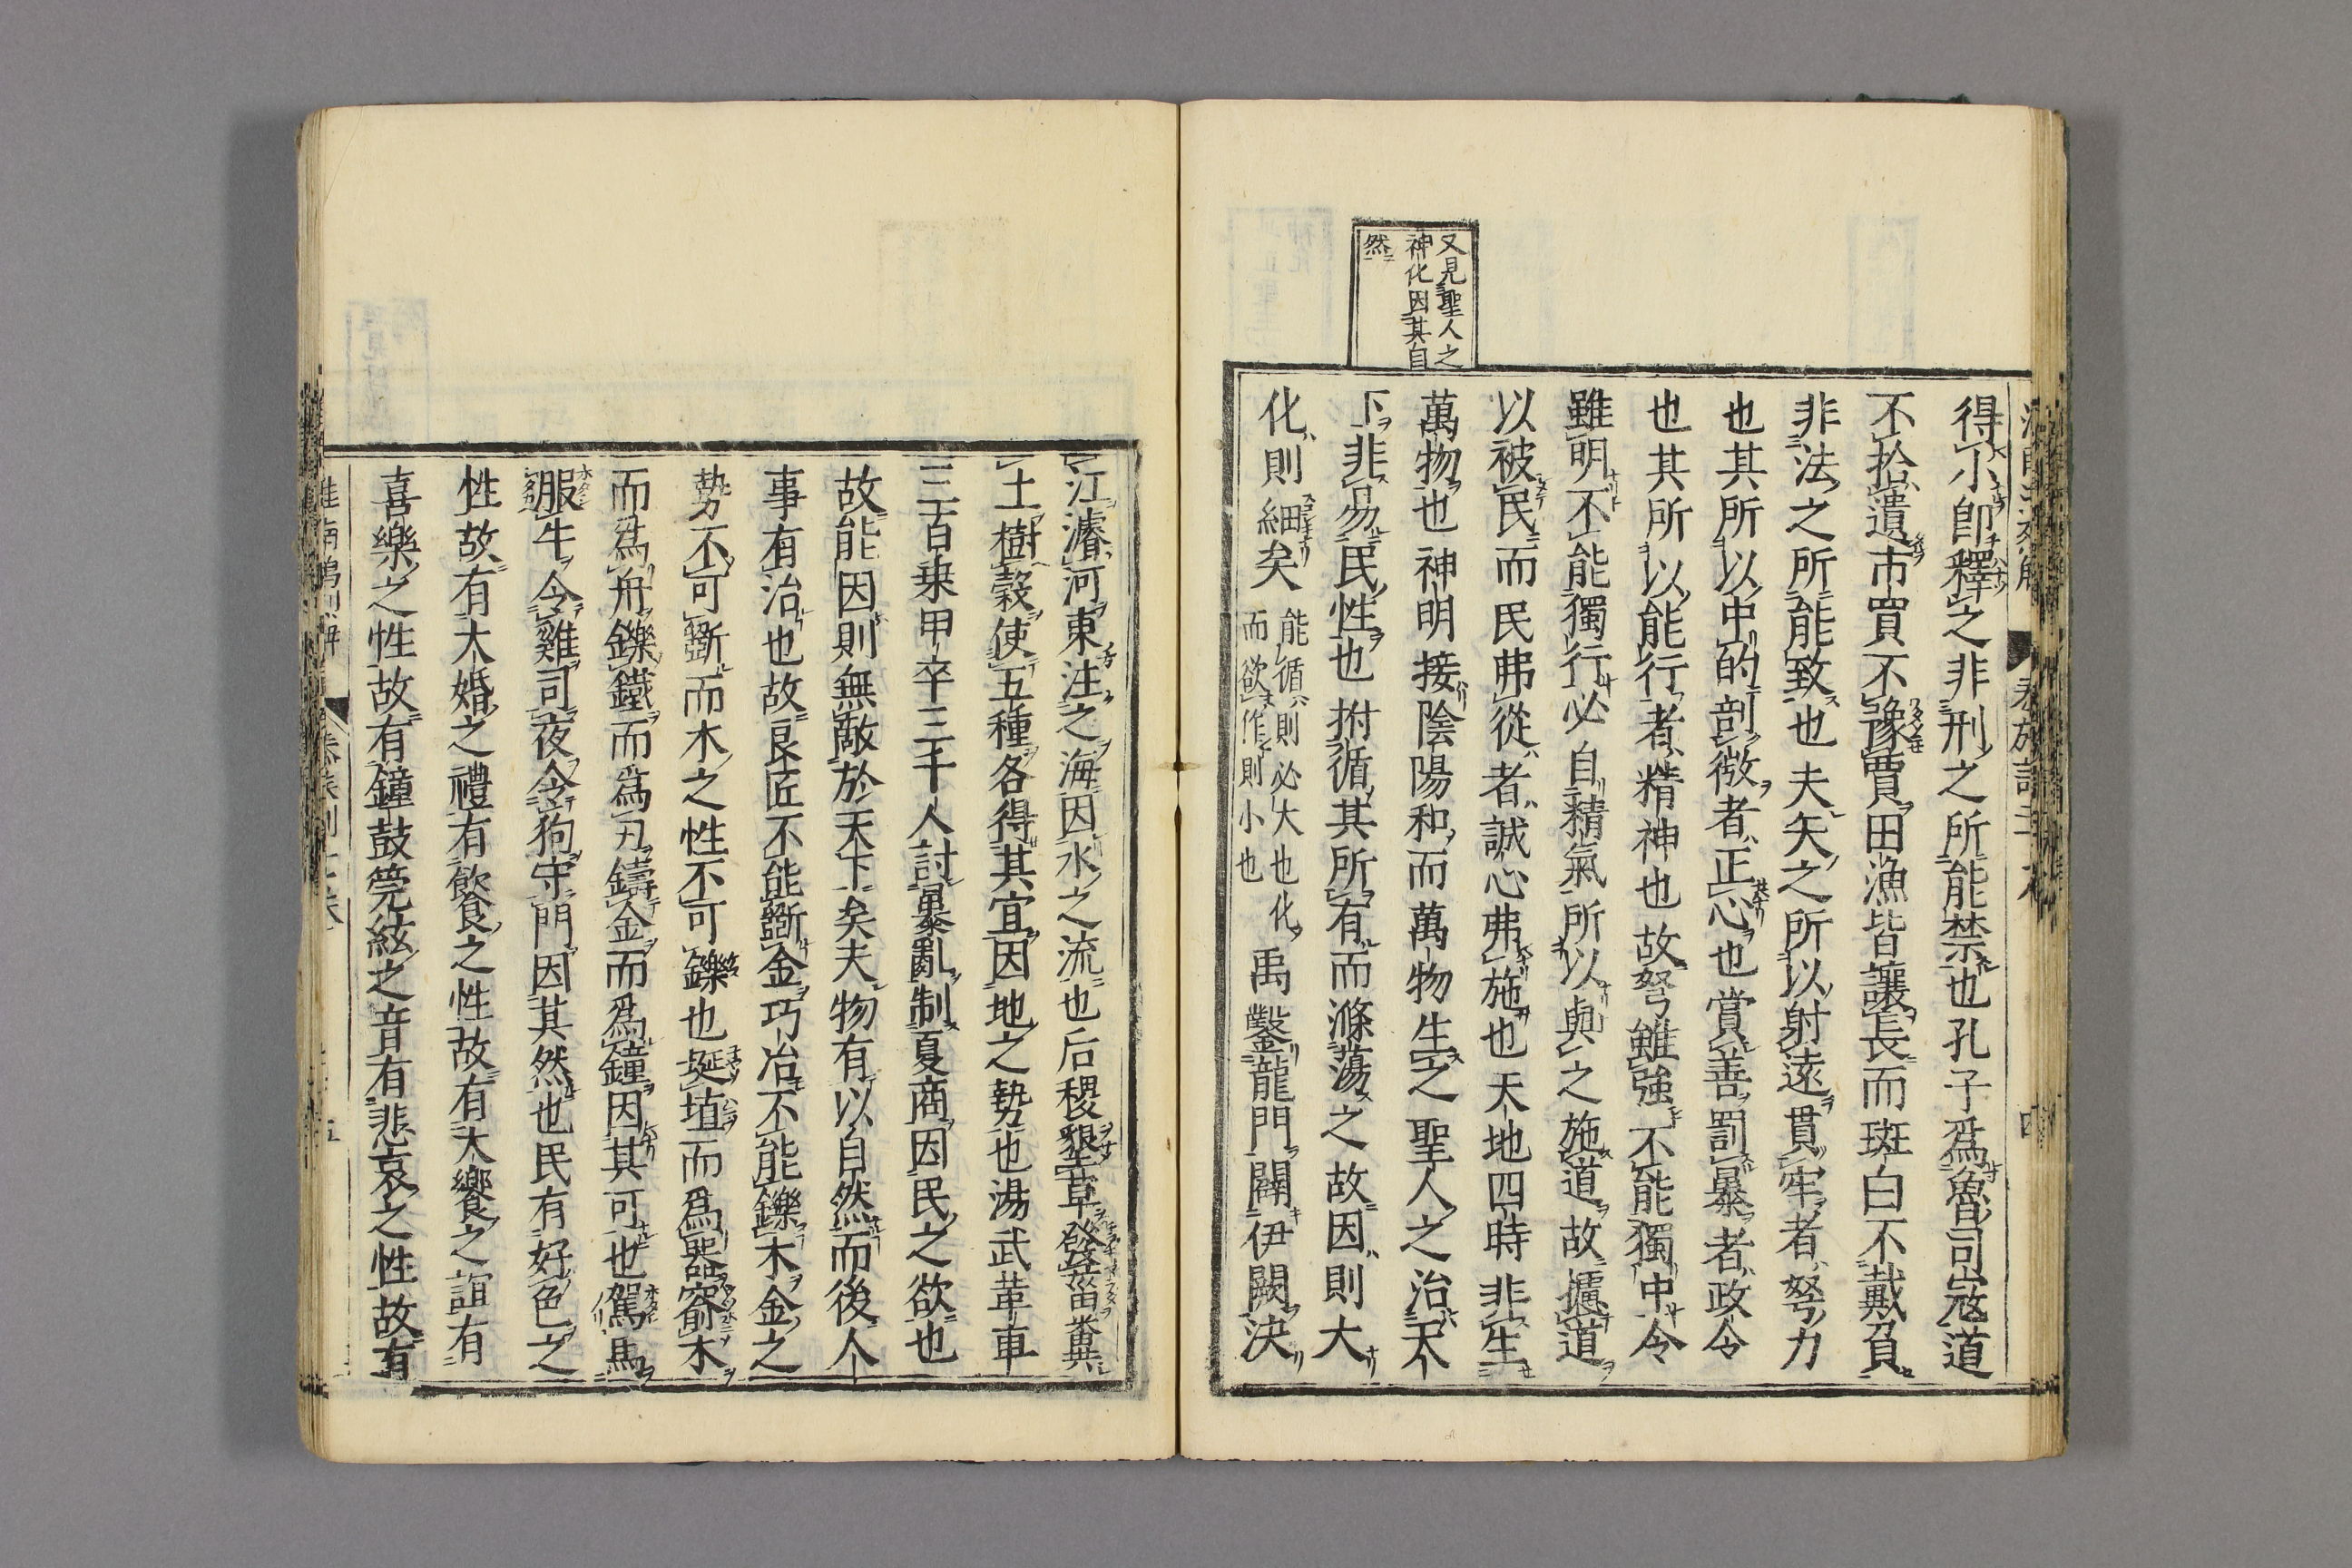 又見聖人之
神化因其自
然
得小卽釋之非刑之所能禁也孔子爲魯司寇道
不拾遺市買不豫賈田漁皆讓長而斑白不戴負
非法之所能致也夫矢之所以射遠貫牢者弩力
也其所以中的剖微者正心也賞善罰暴者政令
也其所以能行者精神也故弩雖強不能獨中令
雖明不能獨行必自精氣所以與之施道故攄道
以被民而民弗從者誠心弗施也天地四時非生
萬物也神明接陰陽和而萬物生之聖人之治天
下非易民性也拊循其所有而滌蕩之故因則大
化則細矣
能循則必大也化
而欲作則小也
禹鑿龍門闢伊闕決
江濬河東注之海因水之流也后稷墾草發菑糞
土樹穀使五種各得其宜因地之勢也湯武革車
三百乗甲卒三千人討暴亂制夏商因民之欲也
故能因則無敵於天下矣夫物有以自然而後人
事有治也故良匠不能斵金巧冶不能鑠木金之
勢不可斵而木之性不可鑠也埏埴而爲器窬木
而爲舟鑠鐵而爲刃鑄金而爲鐘因其可也駕馬
服牛令雞司夜令狗守門因其然也民有好色之
性故有大婚之禮有飲食之性故有大饗之誼有
喜樂之性故有鐘鼓筦絃之音有悲哀之性故有